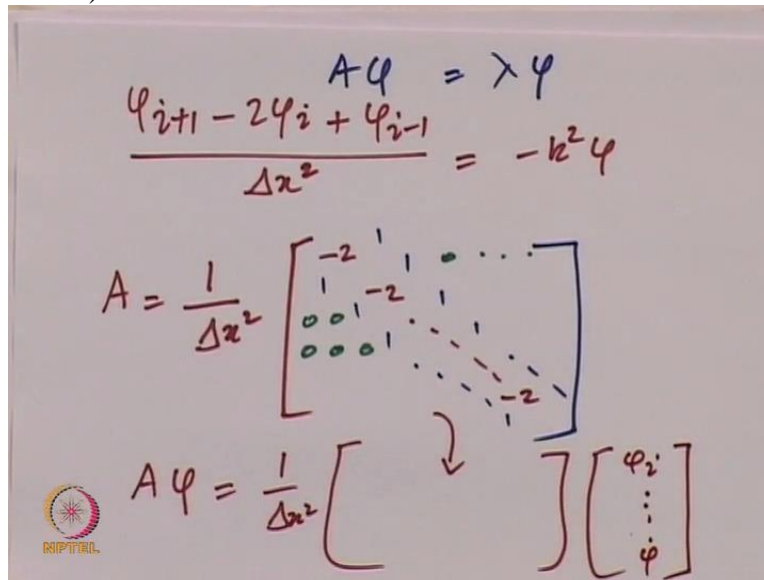 )
Aφ = λφ
φi+1 - 2φi + φi-1 / Δx² = -k²φ
A = 1/Δx² [ -2 1 1 0 . . .
1 -2 1
0 0 1 . 1
0 0 0 1 . -2
1 ]
Aφ = 1/Δx² [ ] [ φi
⋮
φ ]
NPTEL